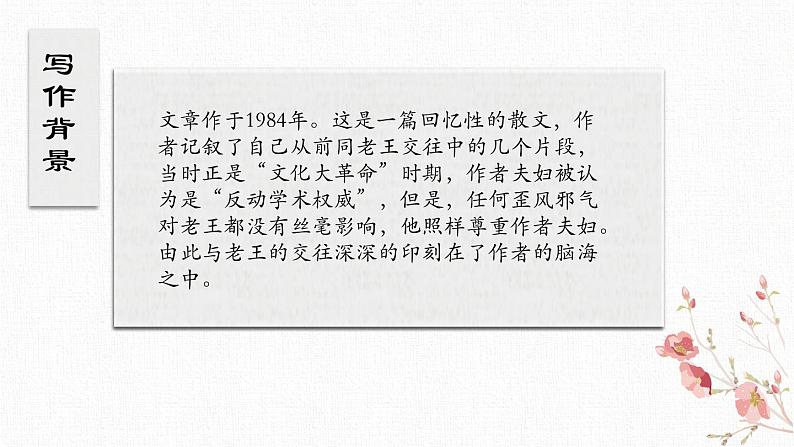 写作背景
文章作于1984年。这是一篇回忆性的散文，作
者记叙了自己从前同老王交往中的几个片段，
当时正是“文化大革命”时期，作者夫妇被认
为是“反动学术权威”，但是，任何歪风邪气
对老王都没有丝毫影响，他照样尊重作者夫妇。
由此与老王的交往深深的印刻在了作者的脑海
之中。